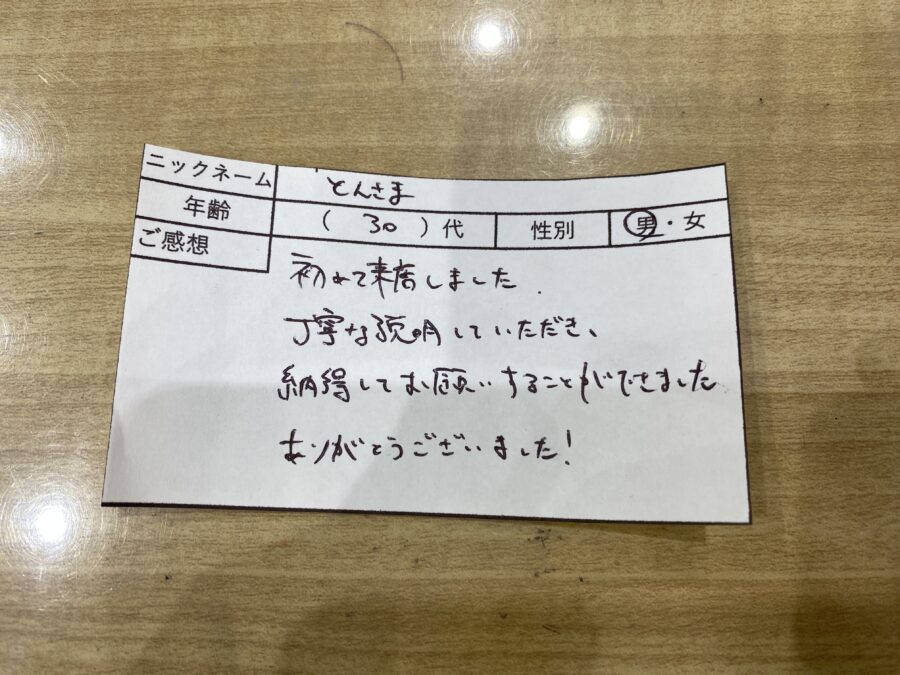 ニックネーム とんさま
年齢 ( 30 ) 代 性別 男・女
ご感想
初めて来店しました.
丁寧な説明していただき、
納得してお願いすることができました
ありがとうございました!